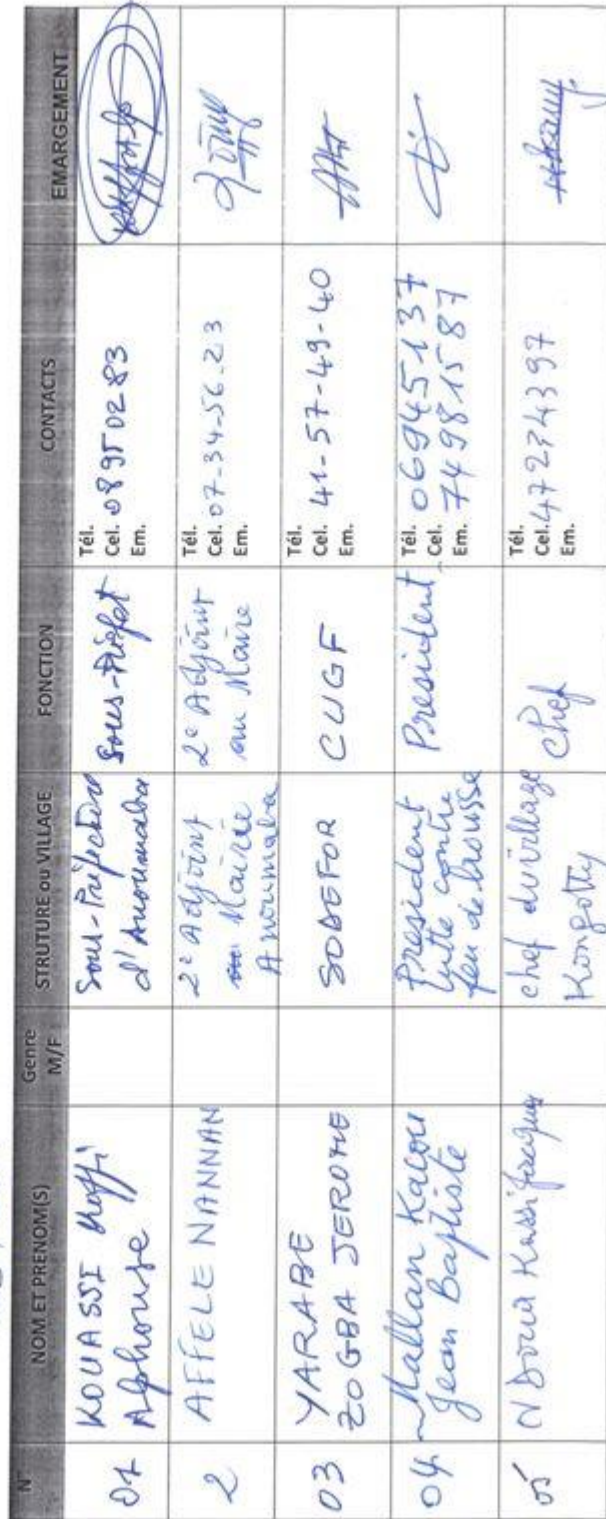 N° NOM ET PRENOM(S) Genre M/F STRUTURE ou VILLAGE FONCTION CONTACTS EMARGEMENT
01
KOUASSI Koffi
Alphonse
Sous-Préfecture
d'Anoumaba
Sous-Préfet
Tél.
Cel. 08950283
Em.
2
AFFELE NANNAN
2e Adjoint
au Mairie
Anoumaba
2e Adjoint
au Maire
Tél.
Cel. 07-34-56-23
Em.
03
YARABE
ZOGBA JEROME
SODEFOR
CUGF
Tél.
Cel. 41-57-49-40
Em.
04
Mallan Kacou
Jean Baptiste
President
lutte contre
feu de brousse
President
Tél. 06945137
Cel. 74981587
Em.
05
N'Doua Kassi Jacques
chef du village
Kongoty
chef
Tél.
Cel. 47274397
Em.